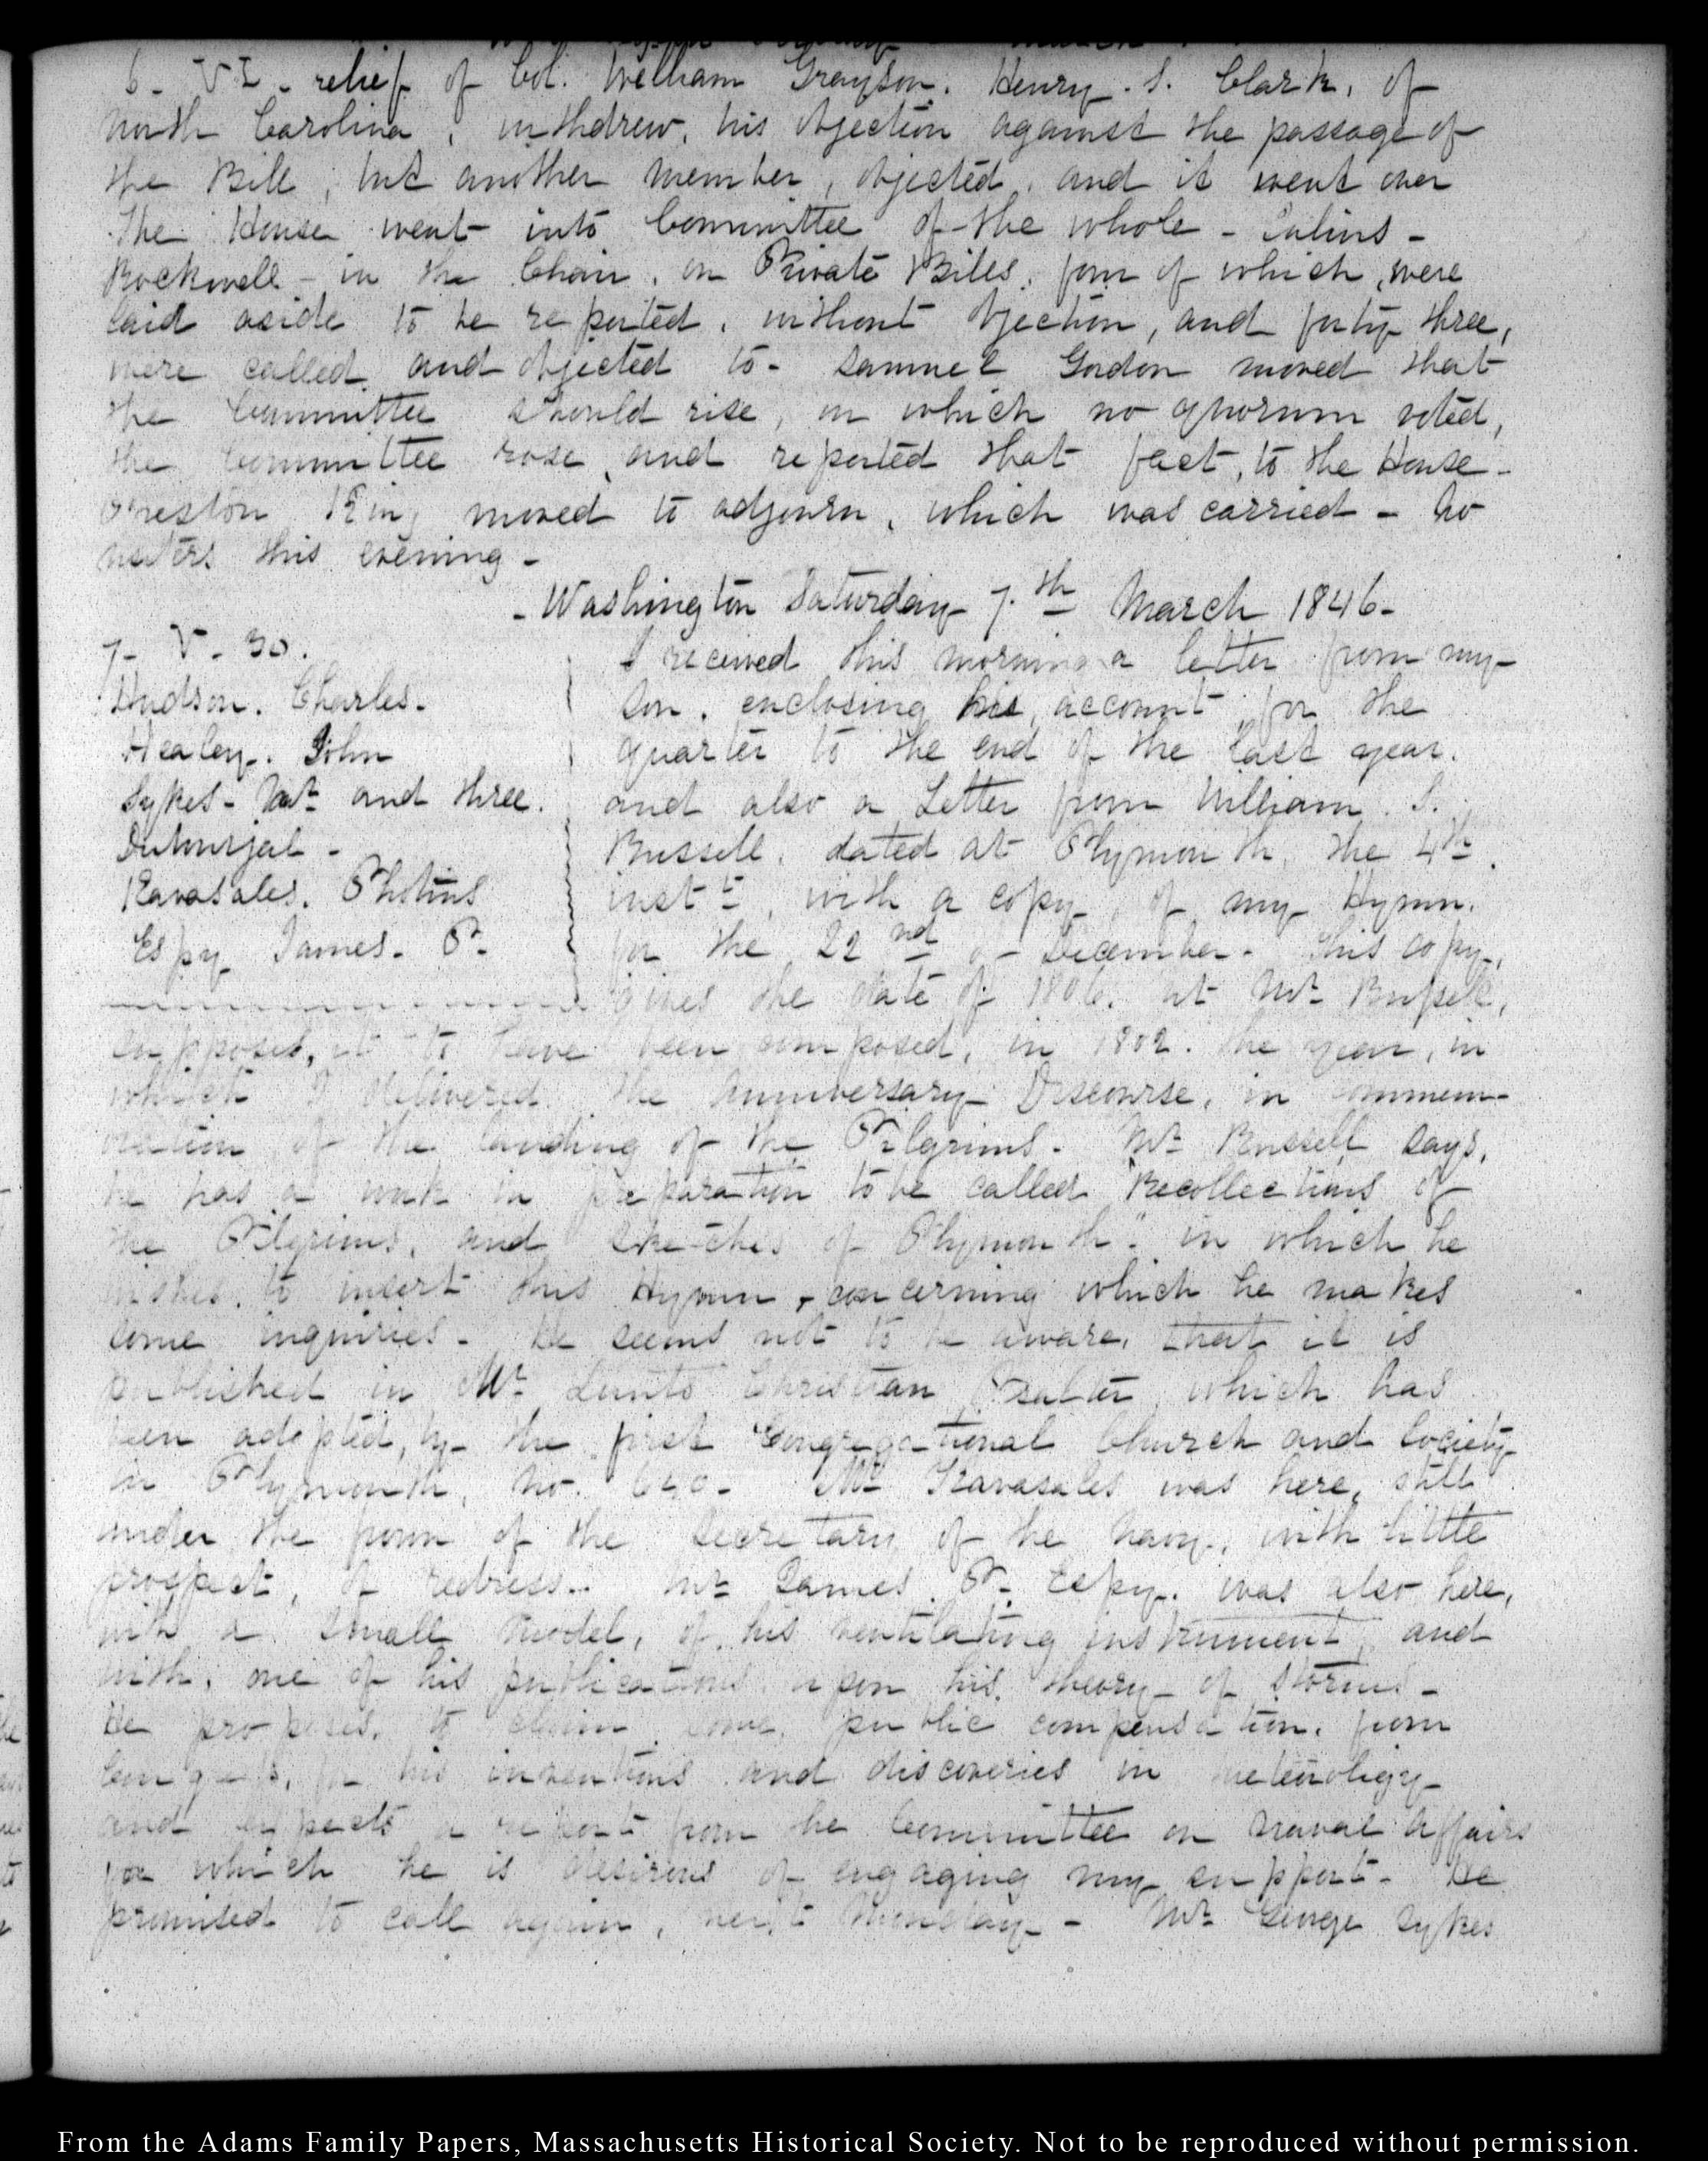 6- VI- relief of Col. William Grayson. Henry. S. Clark, of
North Carolina, withdrew, his objection against the passage of
the Bill, but another member, objected, and it went over
The House went into Committee of the whole - Julius -
Rockwell - in the Chair, on Private Bills, four of which, were
laid aside to be reported, without objection, and forty three,
were called and objected to- Samuel Gordon moved that
the Committee should rise, on which no quorum voted,
the Committee rose, and reported that fact, to the House-
Preston King moved to adjourn, which was carried - No
visiters this evening -
- Washington Saturday 7.th March 1846-
7- V- 30.
Hudson. Charles-
Healey. John
Sykes- Mr and three.
Dutourjal -
Kavasales. Photius
Espy James- P-
I received this morning a letter from my
Son, enclosing his account for the
quarter to the end of the last year.
and also a Letter from William. S.
Russell, dated at Plymouth, the 4th
instt, with a copy, of my Hymn.
for the 22nd of December- This copy,
gives the date of 1806. at Mr Russell,
supposes, it to have been composed, in 1802. the year, in
which I delivered the Anniversary Discourse, in commem-
oration of the landing of the Pilgrims- Mr Russell says,
he has a work in preparation to be called "Recollections of
the Pilgrims, and Sketches of Plymouth" in which he
wishes, to insert this Hymn, concerning which he makes
some inquiries- He seems not to be aware, that it is
published in Mr Lunt's Christian Psalter, which has
been adopted, by the first Congregational Church and Society
in Plymouth, No. Mr Kavasales was here, still
under the power of the Secretary of the Navy, with little
prospect, of redress- Mr James P- Espy. was also here,
with a small model, of his ventilating instrument, and
with, one of his publications upon his theory of storms-
He proposes, to claim some public compensation, from
Congress, for his inventions and discoveries in meteorology
and expects a report from the Committee on Naval Affairs
for which he is desirous of engaging my support- He
promised to call again, next Monday- Mr George Sykes
From the Adams Family Papers, Massachusetts Historical Society. Not to be reproduced without permission.